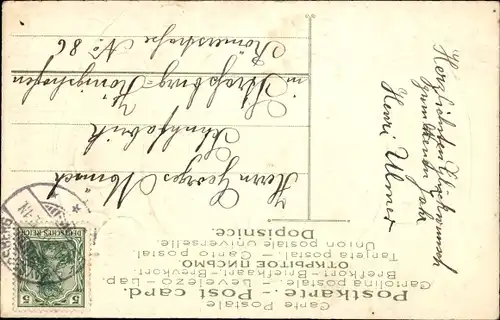 Carte Postale
Postkarte - Post card.
Cartolina postale. - Levelezö-Lap.
Brefkort-Briefkaart-Brevkort.
ОТКРЫТОЕ ПИСЬМО.
Tarjeta postal. - Carto postal.
Union postale universelle.
Dopisnice.
Herzlichsten Glückwunsch
zum neuen Jahr
Henri Ulmer
Herrn Georges
Schuhfabrik
in Straßburg-Königshofen
Römerstraße No 86
DEUTSCHES REICH
5 5